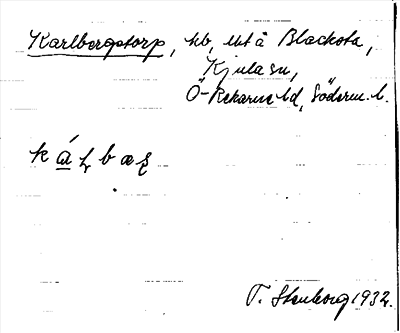 Karlbergstorp, hb, utå Blacksta,
Kjula sn,
Ö-Rekarne hd, Söderm. l.
T. Stenborg 1932.